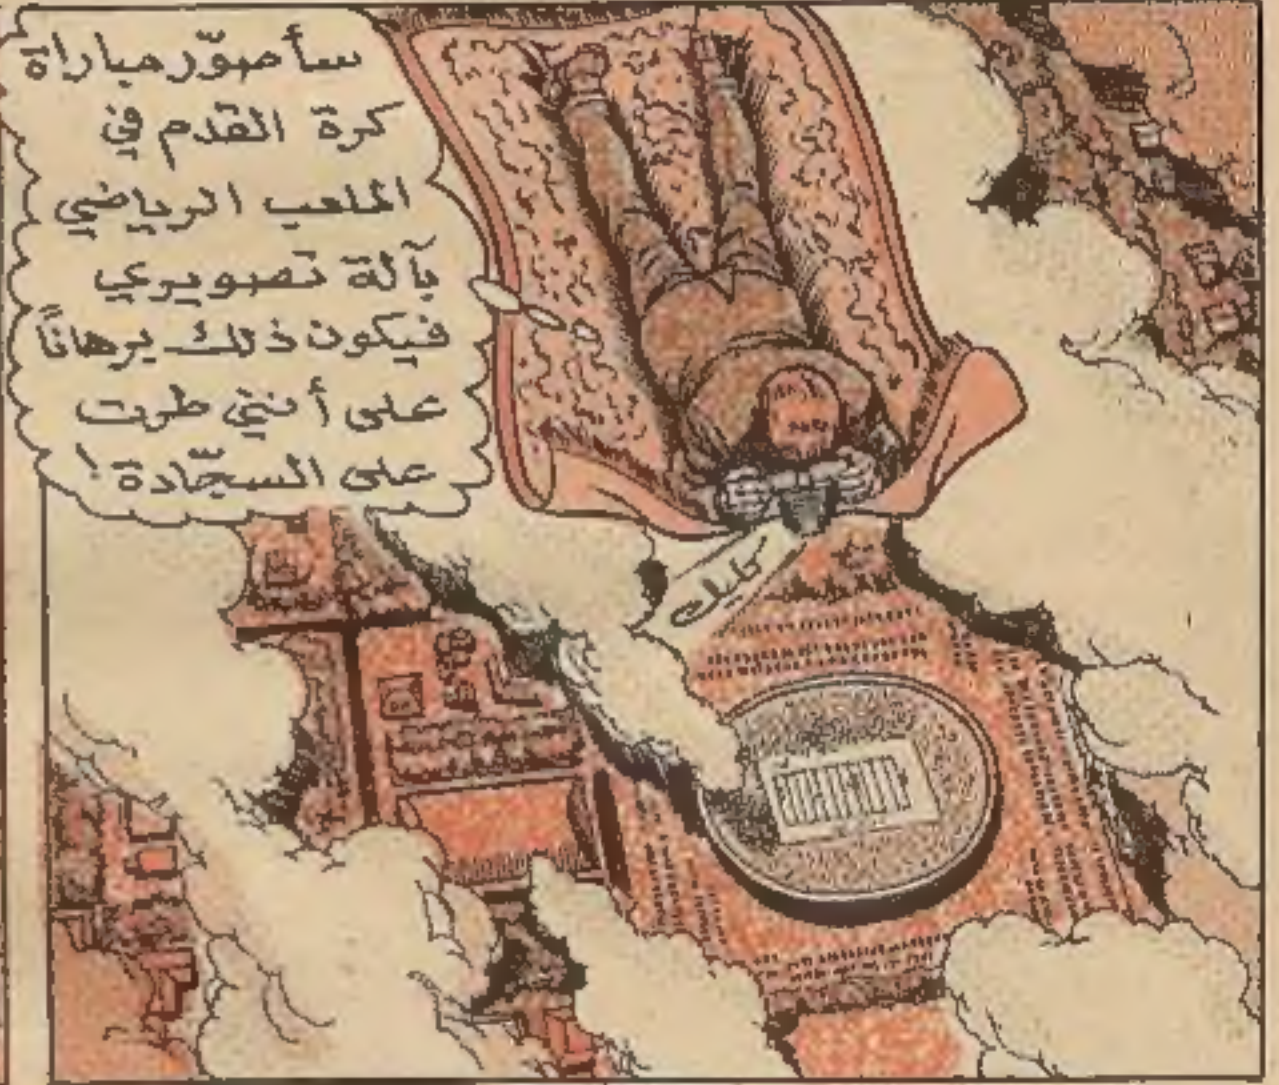 سأصوّر مباراة
كرة القدم في
الملعب الرياضي
بآلة تصويري
فيكون ذلك برهانًا
على أنني طرت
على السجّادة!
كليك